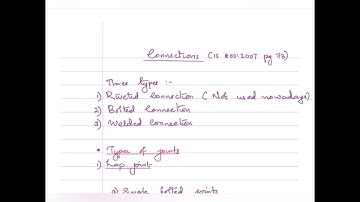 Connections (IS 800:2007 pg 73)
Three types :-
1) Riveted Connection (Not used nowadays).
2) Bolted Connection
3) Welded Connection
• Types of joints
1) Lap joint
a) Single bolted joints